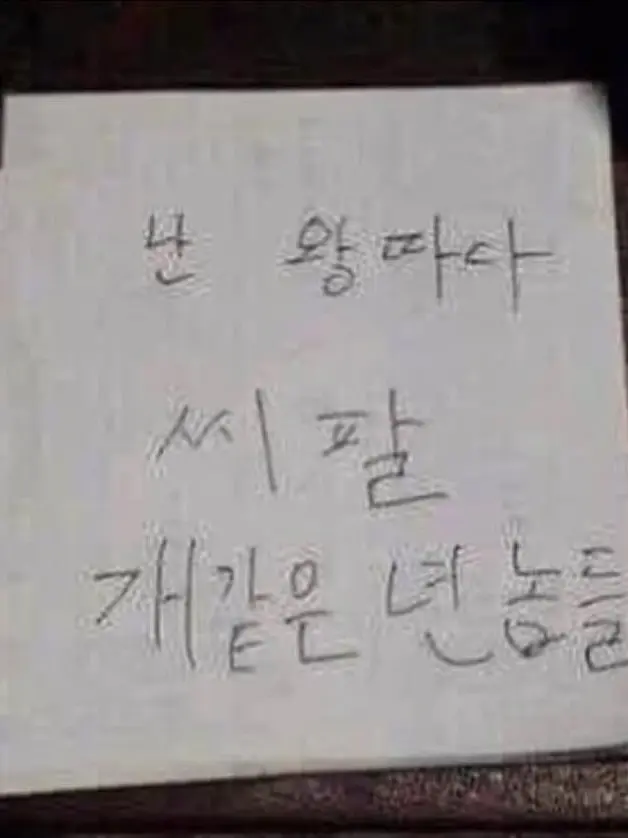 난 왕따다
씨팔
개같은 년놈들